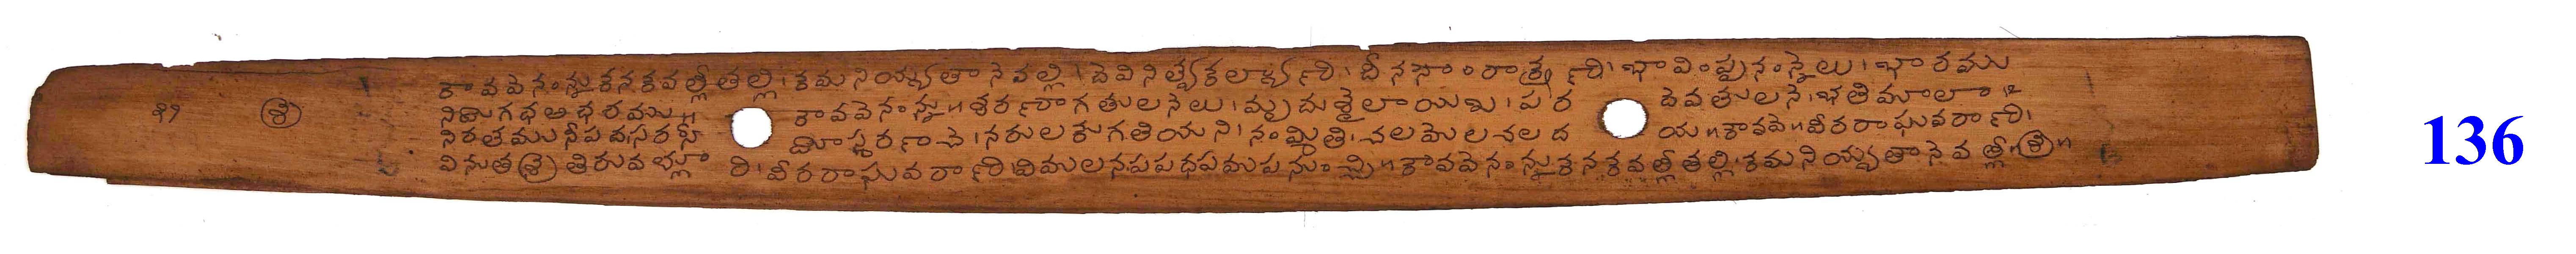 కావవెనంన్నుకనకవల్లీతల్లి। కమనియ్యతానెవల్లి। దెవినిత్యెకలాక్యణి। దీన సాంరాక్ష్యణి। భావింప్పునంన్నెలు। భారము
నిదుగధఅధరము॥ కావవెనంన్ను॥ శరణాగతులనెలు। మృదుశైలాయిఖ। పర దెవతులనె। భతిమూలా
నిరతముసీపదసరసీ మీస్మరణాచె। నరులకుగతియని। నంమ్మితి। చలమెలచలద య॥ కావవె॥ వీరరాఘువరాణి।
వినుత శ్రీ తిరువళ్లూ రి। వీరరాఘువరాణి। విములనపపధపముపనుంచ్చి॥ కావవెనంన్నుకనకవల్లీతల్లి। కమనియ్యతానెవల్లీ॥ శ్రీ॥
౨౧ శ్రీ
136